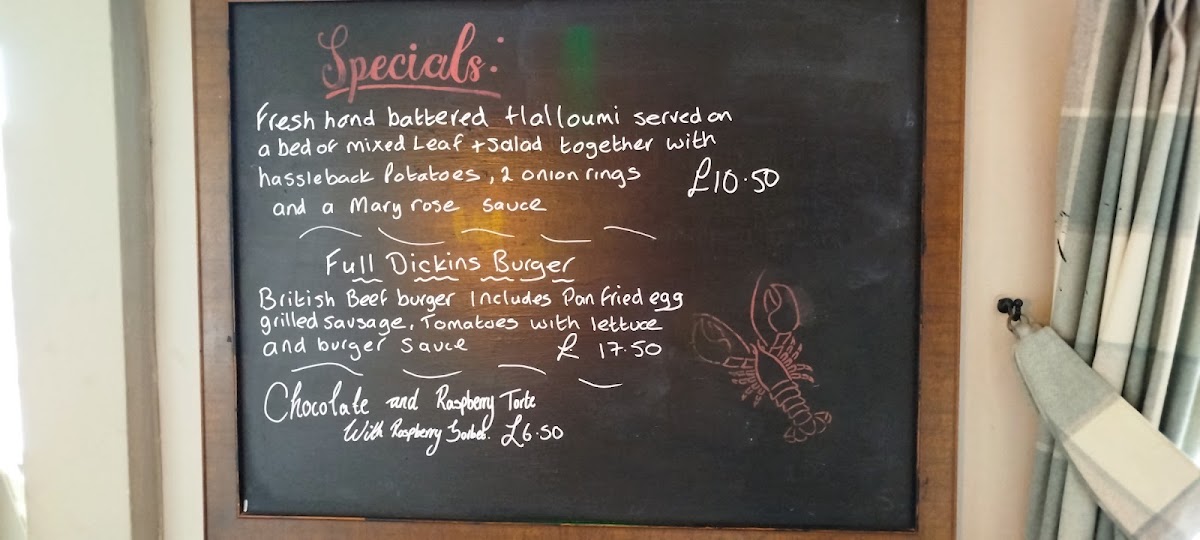 Specials:
Fresh hand battered Halloumi served on
a bed of mixed Leaf + Salad together with
hassleback Potatoes, 2 onion rings
£10.50
and a Mary rose sauce
Full Dickins Burger
British Beef burger Includes Pan fried egg
grilled sausage, Tomatoes with lettuce
and burger sauce £ 17.50
Chocolate and Raspberry Torte
With Raspberry Sorbet. £6.50